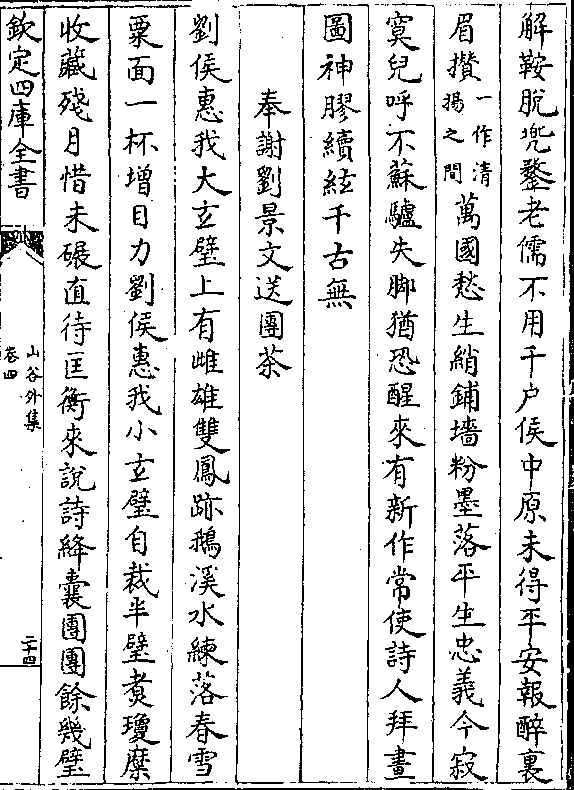 解鞍脫兜鍪老儒不用千户侯中原未得平安報醉裏
眉攅一作清揚之間萬國愁生綃鋪墻粉墨落平生忠義今寂
寞兒呼不蘇驢失脚猶恐醒來有新作常使詩人拜畫
圖神膠續絃千古無
奉謝劉景文送團茶
劉侯惠我大玄璧上有雌雄雙鳳跡鵝溪水練落春雪
粟面一杯增目力劉侯惠我小玄璧自裁半璧煑瓊糜
收藏殘月惜未碾直待匡衡來說詩絳囊團團餘幾璧
欽定四庫全書
山谷外集
卷四
二十四